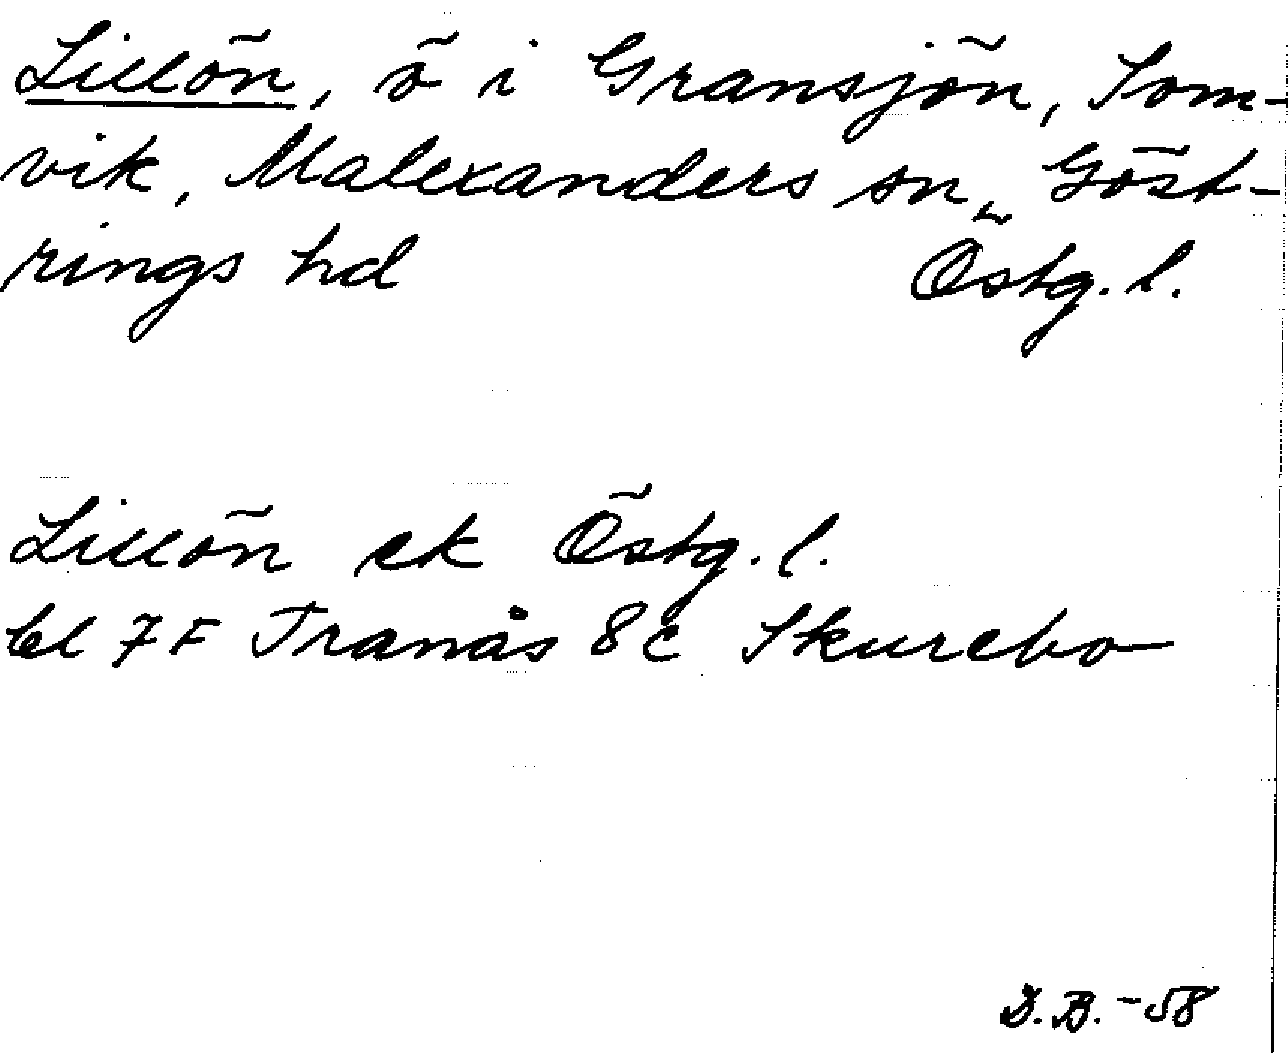 Lillön, ö i Gransjön, Som-
vik, Malexanders sn, Göst-
rings hd Östg. l.
Lillön ek Östg. l.
bl 7 F Tranås 8 c Skurebo
B. -58